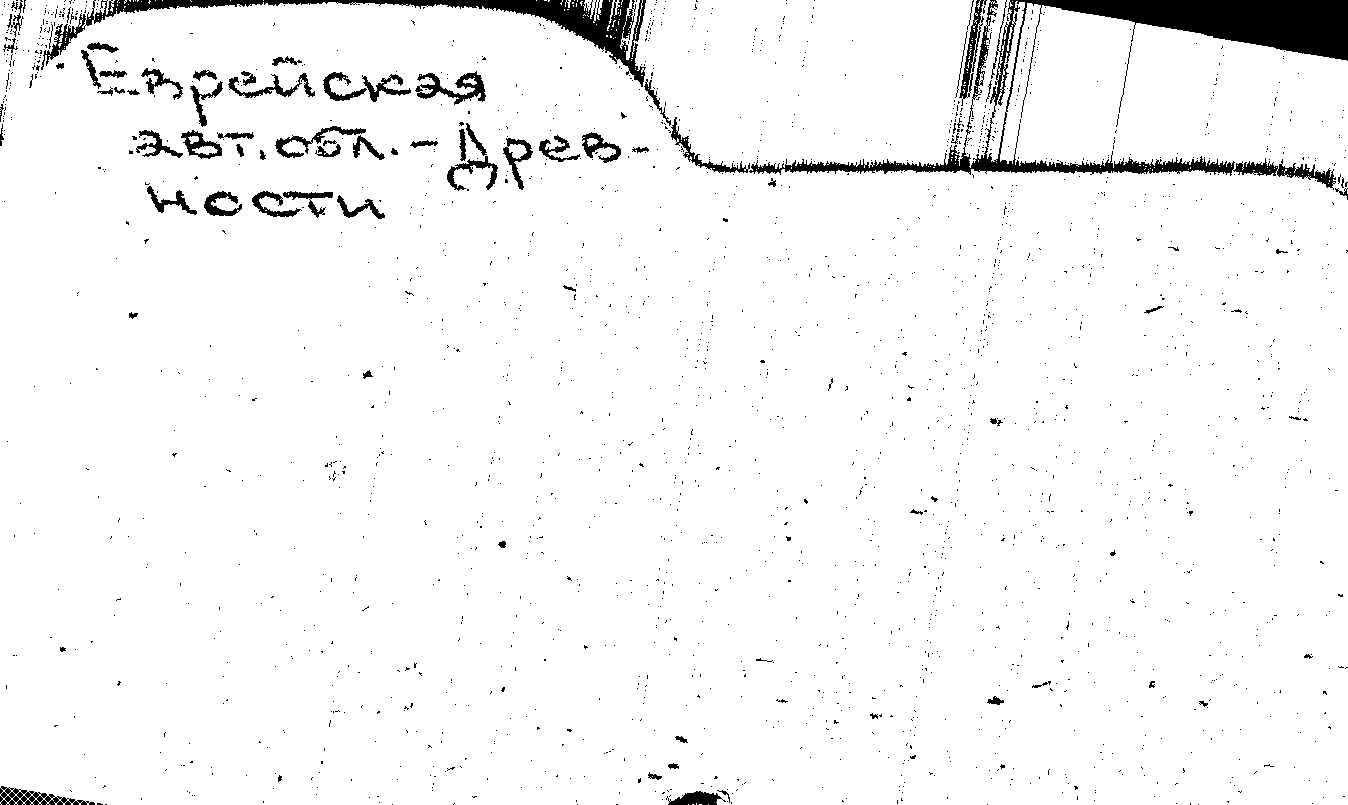 Еврейская
авт. обл. - Древ-
ности